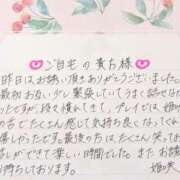 ご自宅の貴方様
昨日はお誘い頂きありがとうございました。
最初お互い少し緊張していてうまく話せな
かったですが、段々慣れてきて、プレイでは姫の
舌でたくさん感じて気持ち良くなってくれ
て嬉しかったです。最後の方はたくさん笑ってお
話しができて楽しい時間でした。またお誘い
お待ちしております。